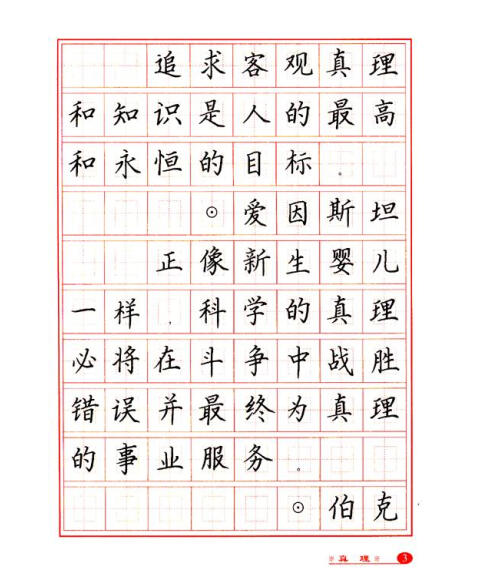 追求客观真理
和知识是人的最高
和永恒的目标。
⊙爱因斯坦
正像新生婴儿
一样,科学的真理
必将在斗争中战胜
错误并最终为真理
的事业服务。
⊙伯克
※真理※ 3